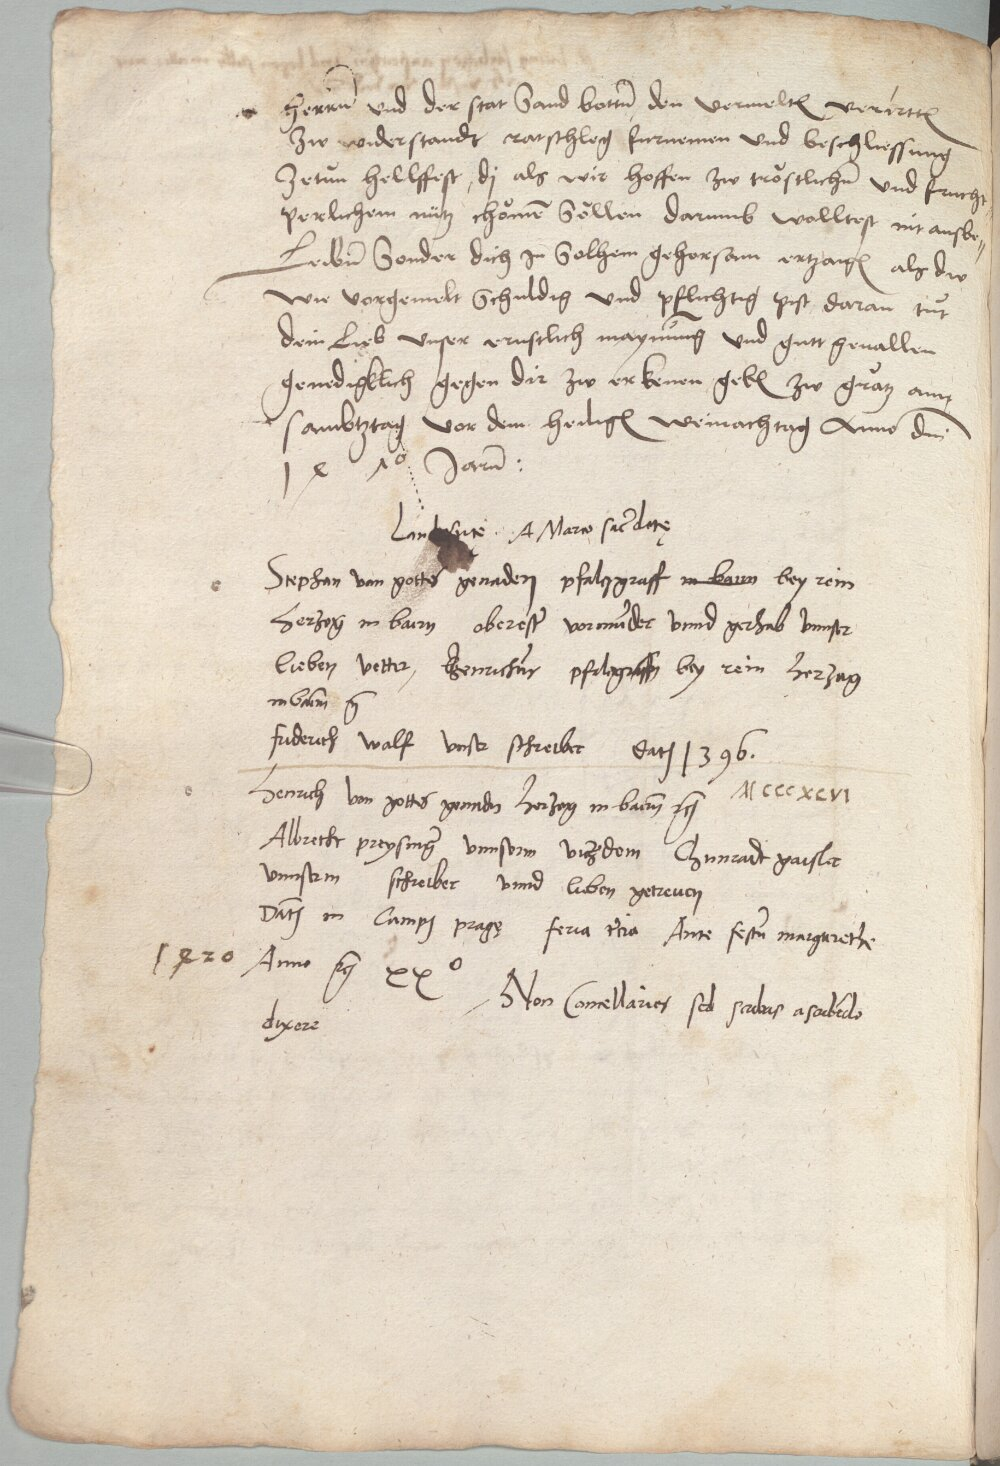 herrn̄ vnd der stat Sand bottn̄ den vermeltn̄
zw widerstandt ratschleg furnemen vnd beschliessung
Zetůn hellffest, dj als wir hoffen zw tröstlichn̄ vnd frucht
perlichem nütz chömē Söllen darumb wolltest nit ausbe⸗
Leibn̄ Sonder dich In Solhem gehorsam ertzaigñ als dw
wie vorgemelt Schuldig vnd pflichtig pist daran tůt
dein Lieb vnser ernstlich maynūng vnd gutt geuallen
genedigklich gegen dir zw erkenen gebñ zw grätz am
Sambtztag vor dem heiligñ weinachtag Anno dm̄
Jarn̄ :
A Marco
Stephan von gottes genaden pfalzgraff in bairn bey rein
herzog in bairn oberester vormūnder vnnd gerhab vnnser
lieben vetter, Henrichen pfalzgraffn bey rein herzog
in bairn
friderich wolf vnser schreiber datū 1396.
Henrich von gottes genaden herzog in bairn MCCCXCVI
Albrecht preysinger vnnserm viczdom Chunradt gaisler
vnnserm schreiber vnnd lieben getreuen
Datū in Campis prage feria tercia Ante festū margarethe
1420 Anno XX°
Non Cancellarios sed scribas a scribendo
dixere